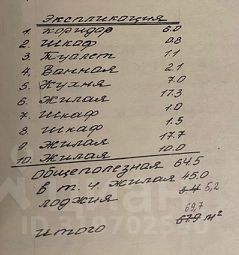 Экспликация
1. Коридор 6.0
2. Шкаф 0.8
3. Туалет 1.1
4. Ванная 2.1
5. Кухня 7.0
6. Жилая 17.3
7. Шкаф 1.0
8. Шкаф 1.5
9. Жилая 17.7
10. Жилая 10.0
Общеполезная 64.5
в т. ч. жилая 45.0
лоджия 5,2
69,7
итого м²